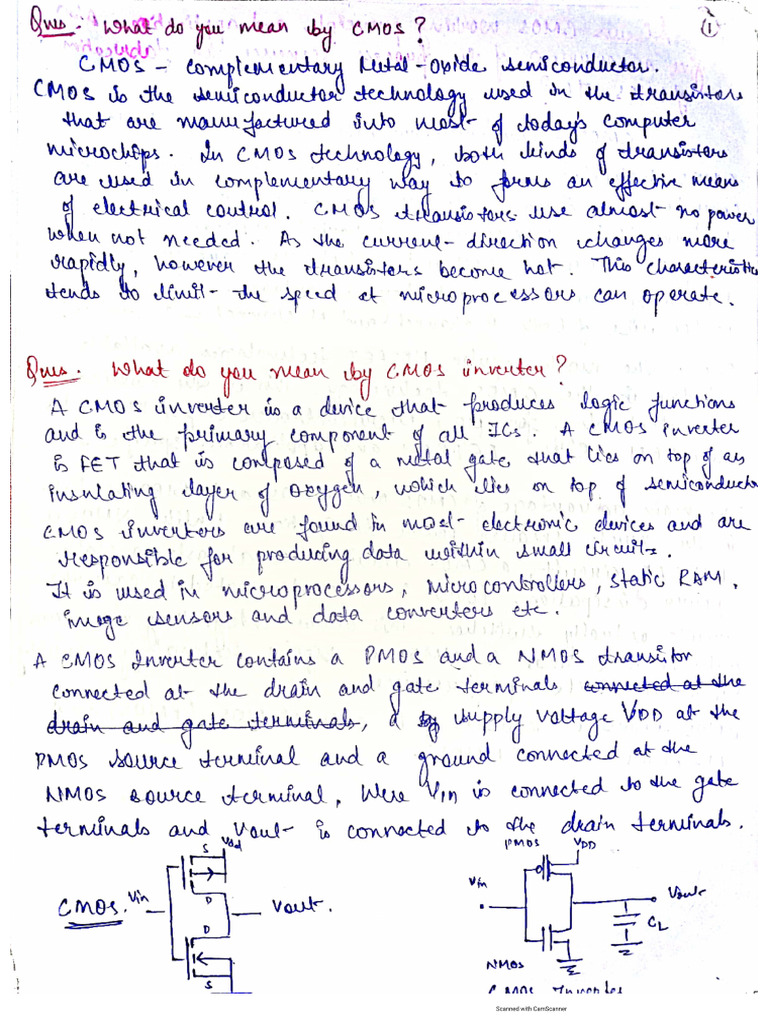 Ques:- What do you mean by CMOS?
1
CMOS - Complementary Metal-Oxide Semiconductor.
CMOS is the semiconductor technology used in the transistors
that are manufactured into most of today's computer
microchips. In CMOS technology, both kinds of transistors
are used in complementary way to forms an effective means
of electrical control. CMOS transistors use almost no power
when not needed. As the current direction changes more
rapidly, however the transistors become hot. This characteristic
tends to limit the speed at microprocessors can operate.
Ques. What do you mean by CMOS inverter?
A CMOS inverter is a device that produces logic functions
and is the primary component of all ICs. A CMOS inverter
is FET that is composed of a metal gate that lies on top of an
insulating layer of oxygen, which lies on top of semiconductor
CMOS inverters are found in most electronic devices and are
responsible for producing data within small circuits.
It is used in microprocessors, microcontrollers, static RAM,
image sensors and data converters etc.
A CMOS Inverter contains a PMOS and a NMOS transistor
connected at the drain and gate terminals connected at the
drain and gate terminals, a supply voltage VDD at the
PMOS source terminal and a ground connected at the
NMOS source terminal, Were Vin is connected to the gate
terminals and Vout is connected to the drain terminals.
S Vdd
CMOS. Vin
D
D
Vout.
S
PMOS VDD
Vin
Vout
CL
NMOS
CMOS Inverter
Scanned with CamScanner